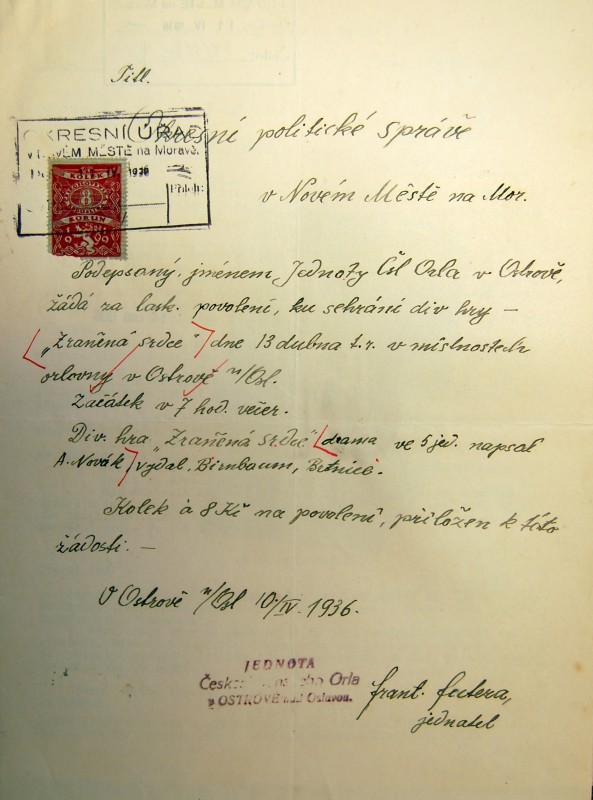 Titl.
Okresní politické správě
OKRESNÍ ÚŘAD
v NOVÉM MĚSTĚ na Moravě.
IV 1936
Příloh:
KOLEK
8
KORUN
v Novém Městě na Mor.
Podepsaný, jménem Jednoty Čsl Orla v Ostrově,
žádá za lask. povolení, ku sehrání div hry –
„Zraněná srdce" dne 13 dubna t.r. v místnostech
orlovny v Ostrově n/Osl.
Začátek v 7 hod. večer.
Div. hra „Zraněná srdce" drama ve 5 jed. napsal
A. Novák, vydal, Birnbaum, Brtnice.
Kolek à 8 Kč na povolení, přiložen k této
žádosti. —
V Ostrově n/Osl 10/IV. 1936.
JEDNOTA
Orla
v OSTROVĚ nad Oslavou.
frant.
jednatel